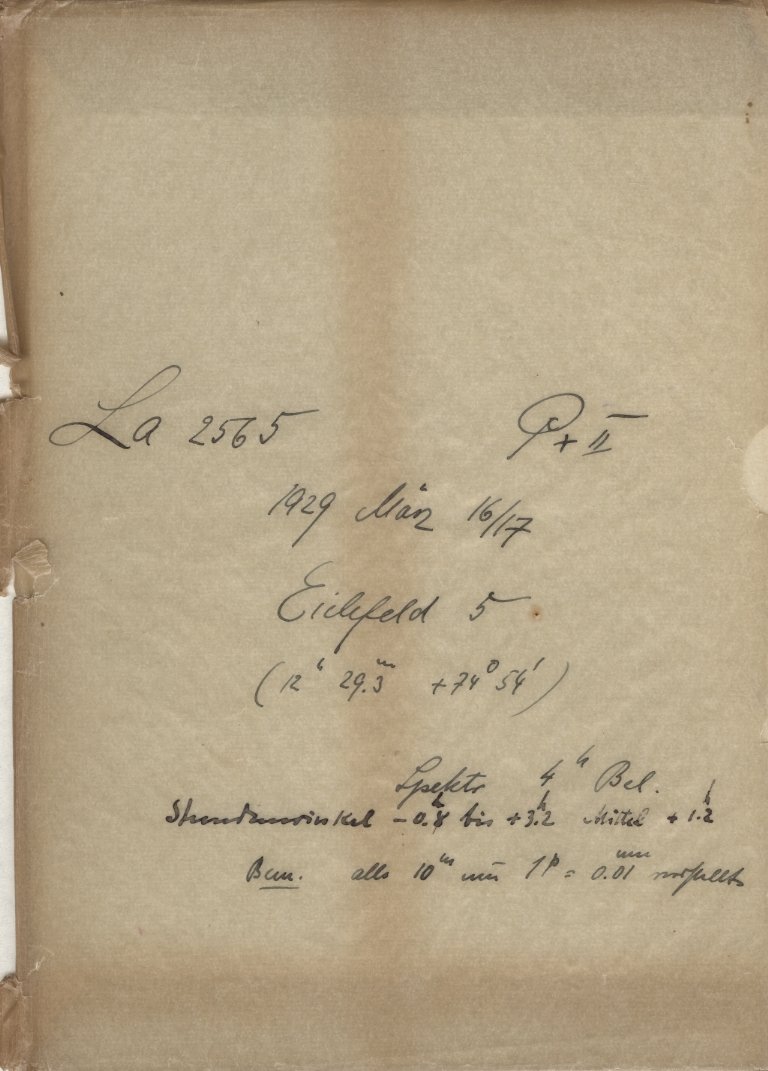 La 2565 P x II
1929 März 16/17
Eichfeld 5
(12ʰ 29.3ᵐ +74° 54')
Spektr 4ʰ Bel.
Stundenwinkel -0.8ʰ bis +3.2ʰ Mittel +1.2ʰ
Bem. alle 10ᵐ um 1ᵖ = 0.01ᵐᵐ verstellt